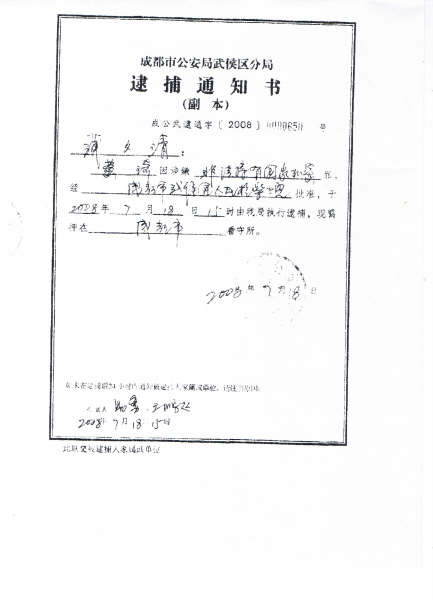 成都市公安局武侯区分局
逮捕通知书
(副本)
成公武逮通字〔2008〕0000650号
:
黄琦因涉嫌非法持有国家机密罪,
经成都市武侯区人民检察院批准,于
2008年7月18日15时由我局执行逮捕,现羁
押在成都市看守所。
2008年7月18日
2008年7月18日15时
此联交被逮捕人家属或单位